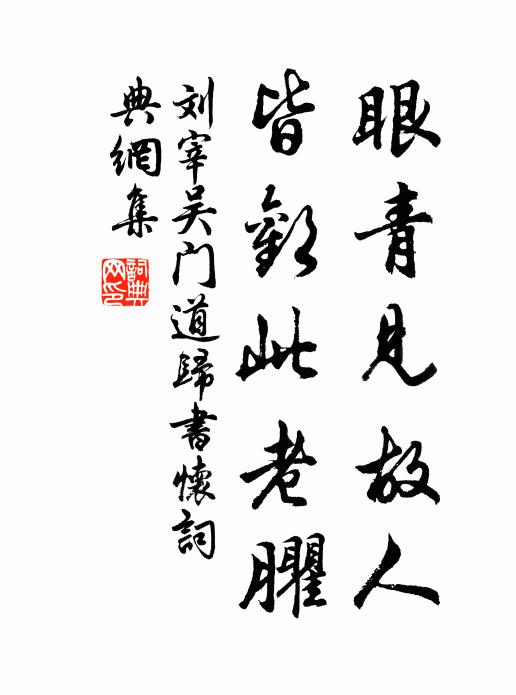 眼青見故人
皆歎此老臞
刘宰吴门道歸書懷詞
典網集
詞典
网印